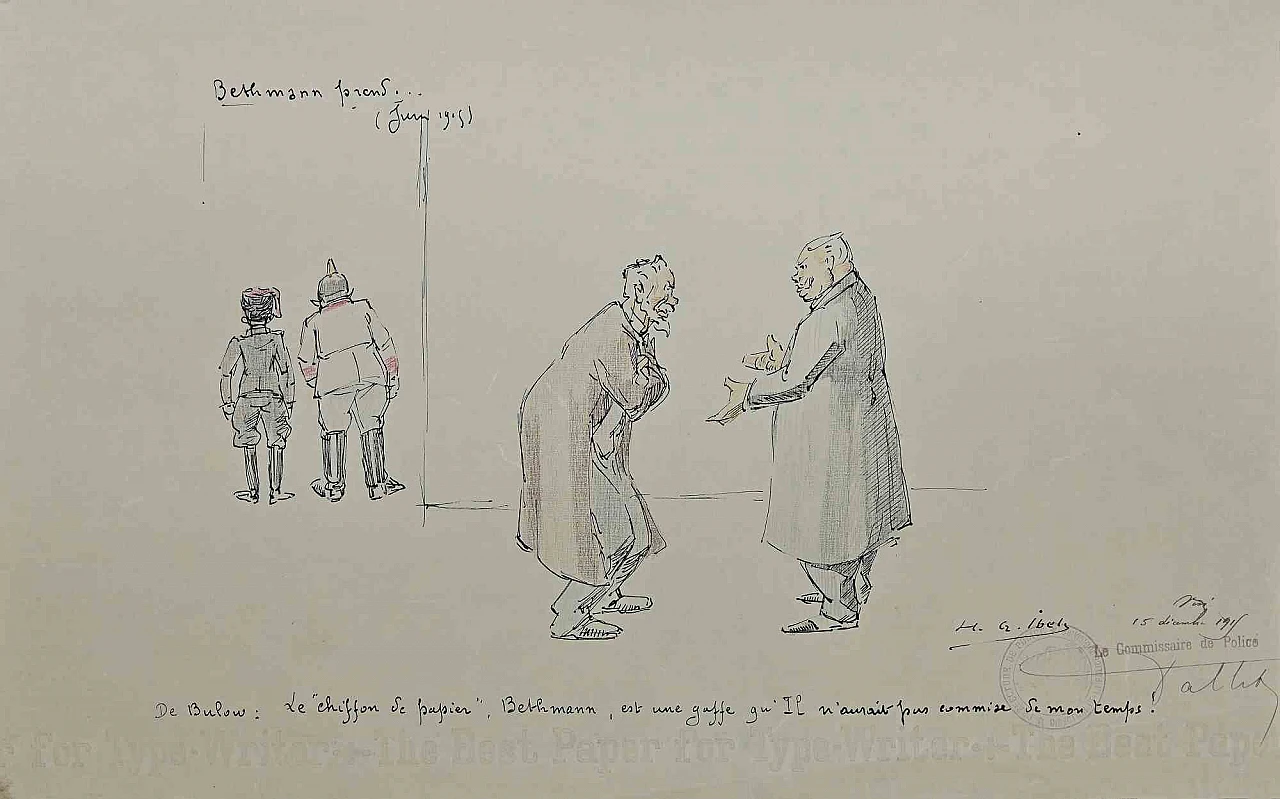 Bethmann prend...
(Juin 1915)
H. G. Ibels
Visé
15 décembre 1915
Le Commissaire de Police
De Bulow : Le "chiffon de papier", Bethmann, est une gaffe qu'Il n'aurait pas commise de mon temps!
for Type-Writer The Best Paper for Type-Writer The Best Pap